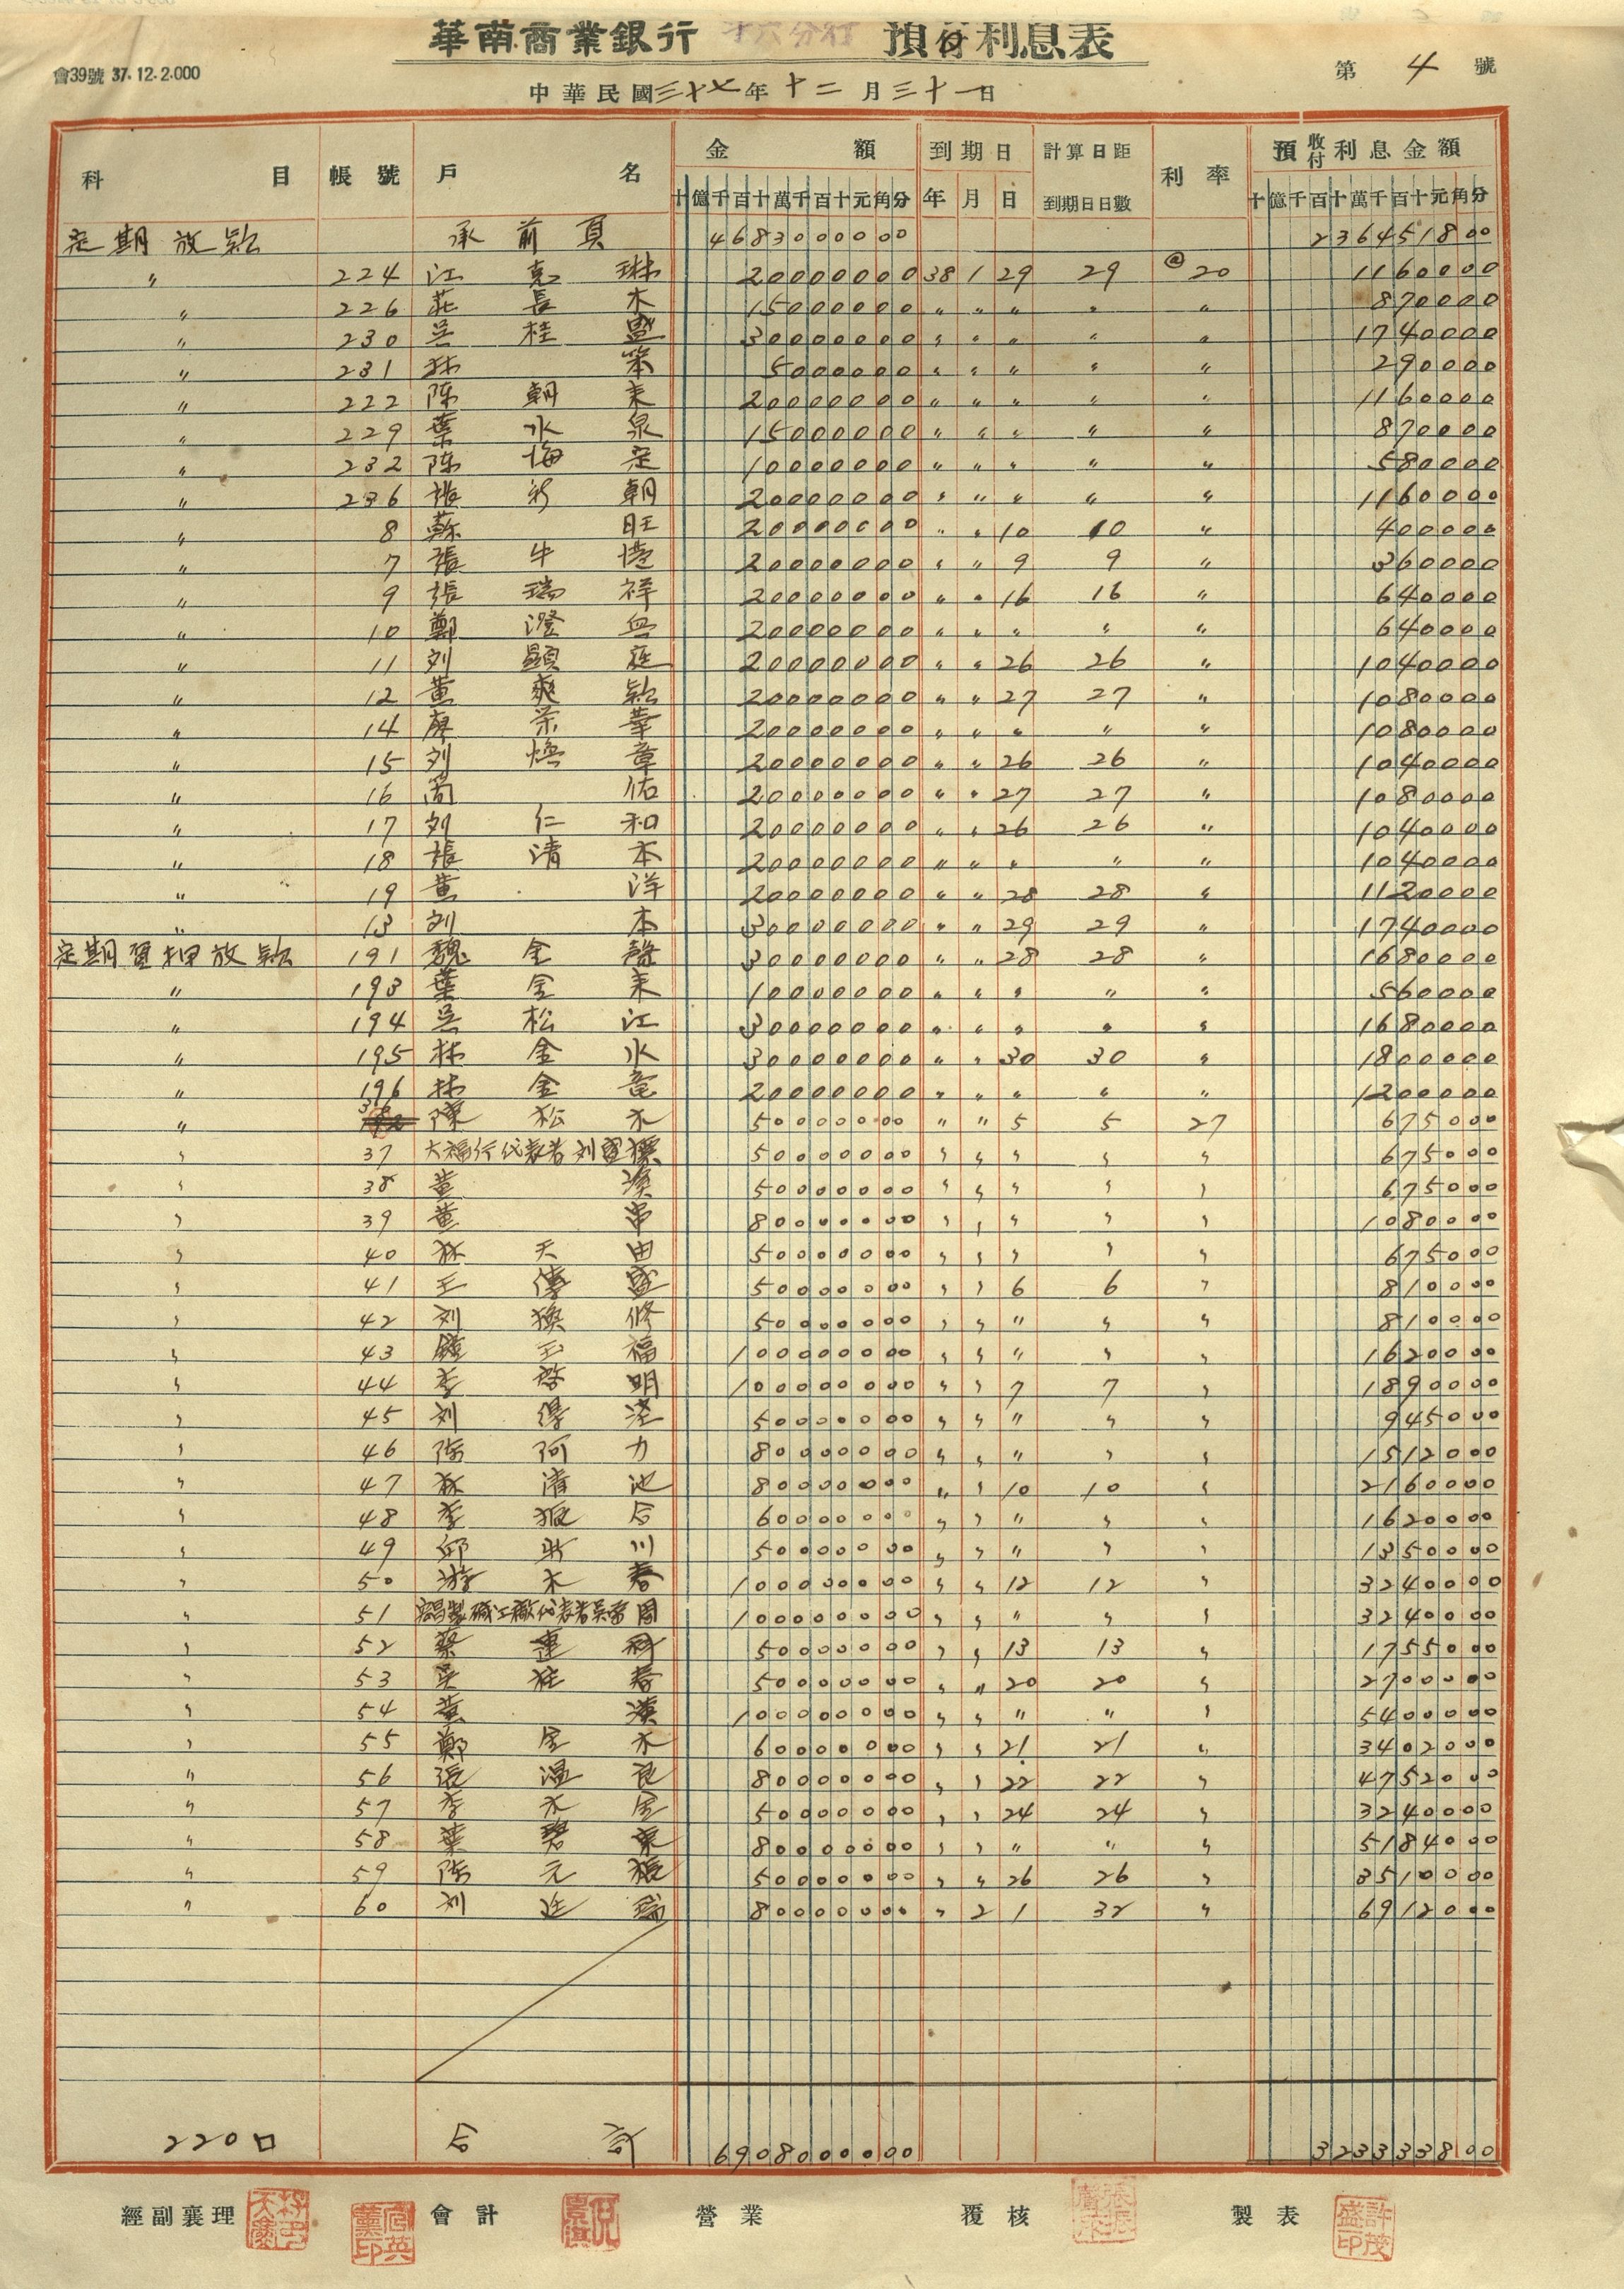 華南商業銀行 预付利息表
會39號 37.12.2.000
第 4 號
中華民國三十七年十二月三十一日
科目 帳號 戶名 金額 到期日 計算日距到期日日數 利率 預收付利息金額
十億千百十萬千百十元角分 年 月 日 十億千百十萬千百十元角分
定期放款 承前頁 46830000000 236451800
〃 224 江 琳 2000000000 38 1 29 29 @20 1160000
〃 226 莊長木 150000000 〃 〃 〃 〃 〃 870000
〃 230 吳桂盛 300000000 〃 〃 〃 〃 〃 1740000
〃 231 林笨 50000000 〃 〃 〃 〃 〃 290000
〃 222 陈朝來 200000000 〃 〃 〃 〃 〃 1160000
〃 229 葉水泉 150000000 〃 〃 〃 〃 〃 870000
〃 232 陈海定 100000000 〃 〃 〃 〃 〃 580000
〃 236 張新朝 200000000 〃 〃 〃 〃 〃 1160000
〃 8 蘇旺 200000000 〃 〃 10 10 〃 400000
〃 7 張牛 200000000 〃 〃 9 9 〃 360000
〃 9 張瑞祥 200000000 〃 〃 16 16 〃 640000
〃 10 鄭澄 200000000 〃 〃 〃 〃 〃 640000
〃 11 刘顕庭 200000000 〃 〃 26 26 〃 1040000
〃 12 黃爽 200000000 〃 〃 27 27 〃 1080000
〃 14 廖榮華 200000000 〃 〃 〃 〃 〃 1080000
〃 15 刘焕章 200000000 〃 〃 26 26 〃 1040000
〃 16 簡佑 200000000 〃 〃 27 27 〃 1080000
〃 17 刘仁和 200000000 〃 〃 26 26 〃 1040000
〃 18 張清本 200000000 〃 〃 〃 〃 〃 1040000
〃 19 黃洋 200000000 〃 〃 28 28 〃 1120000
〃 13 刘本 300000000 〃 〃 29 29 〃 1740000
定期質押放款 191 魏金 300000000 〃 〃 28 28 〃 1680000
〃 193 葉金來 100000000 〃 〃 〃 〃 〃 560000
〃 194 吳松江 300000000 〃 〃 〃 〃 〃 1680000
〃 195 林金水 300000000 〃 〃 30 30 〃 1800000
〃 196 林金竜 200000000 〃 〃 〃 〃 〃 1200000
〃 36 陳松水 500000000 〃 〃 5 5 27 675000
〃 37 大福行代表者刘 500000000 〃 〃 〃 〃 〃 675000
〃 38 黃漢 500000000 〃 〃 〃 〃 〃 675000
〃 39 黃串 800000000 〃 〃 〃 〃 〃 1080000
〃 40 林天由 500000000 〃 〃 〃 〃 〃 675000
〃 41 王傳盛 500000000 〃 〃 6 6 〃 810000
〃 42 刘修 500000000 〃 〃 〃 〃 〃 810000
〃 43 鐘玉福 1000000000 〃 〃 〃 〃 〃 1620000
〃 44 李啓明 1000000000 〃 〃 7 7 〃 1890000
〃 45 刘 500000000 〃 〃 〃 〃 〃 945000
〃 46 陈阿力 800000000 〃 〃 〃 〃 〃 1512000
〃 47 林清池 800000000 〃 〃 10 10 〃 2160000
〃 48 李振合 600000000 〃 〃 〃 〃 〃 1620000
〃 49 邱新川 500000000 〃 〃 〃 〃 〃 1350000
〃 50 游木春 1000000000 〃 〃 12 12 〃 3240000
〃 51 製碱工廠代表者吳 周 1000000000 〃 〃 〃 〃 〃 3240000
〃 52 蔡連科 500000000 〃 〃 13 13 〃 1755000
〃 53 吳桂春 500000000 〃 〃 20 20 〃 2700000
〃 54 黃漢 1000000000 〃 〃 〃 〃 〃 5400000
〃 55 鄭金水 600000000 〃 〃 21 21 〃 3402000
〃 56 張溫良 800000000 〃 〃 22 22 〃 4752000
〃 57 李水金 500000000 〃 〃 24 24 〃 3240000
〃 58 葉碧東 800000000 〃 〃 〃 〃 〃 5184000
〃 59 陈元振 500000000 〃 〃 26 26 〃 3510000
〃 60 刘廷瑞 800000000 〃 2 1 32 〃 6912000
220口 合計 69080000000 323333800
經副襄理 會計 營業 覆核 製表
許茂盛印